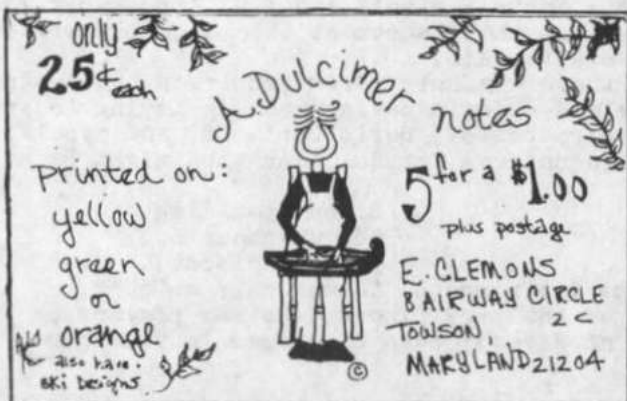 only
25¢ each
A. Dulcimer notes
printed on:
yellow
green
or
orange
also have
ski Designs
5 for a $1.00
plus postage
E. CLEMONS
8 AIRWAY CIRCLE
2C
TOWSON,
MARYLAND 21204
©